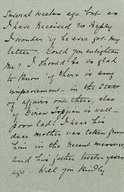 Several weeks ago but as
I have received no reply
I wonder if he ever got my
letter. Could you enlighten
me? I should be so glad
to know if there is any
improvement in the state
of affairs out there, also
if Dover is well
poor lad! I hear his
dear mother was taken from
him in the recent massacre,
and his father twelve years
ago. Will you kindly